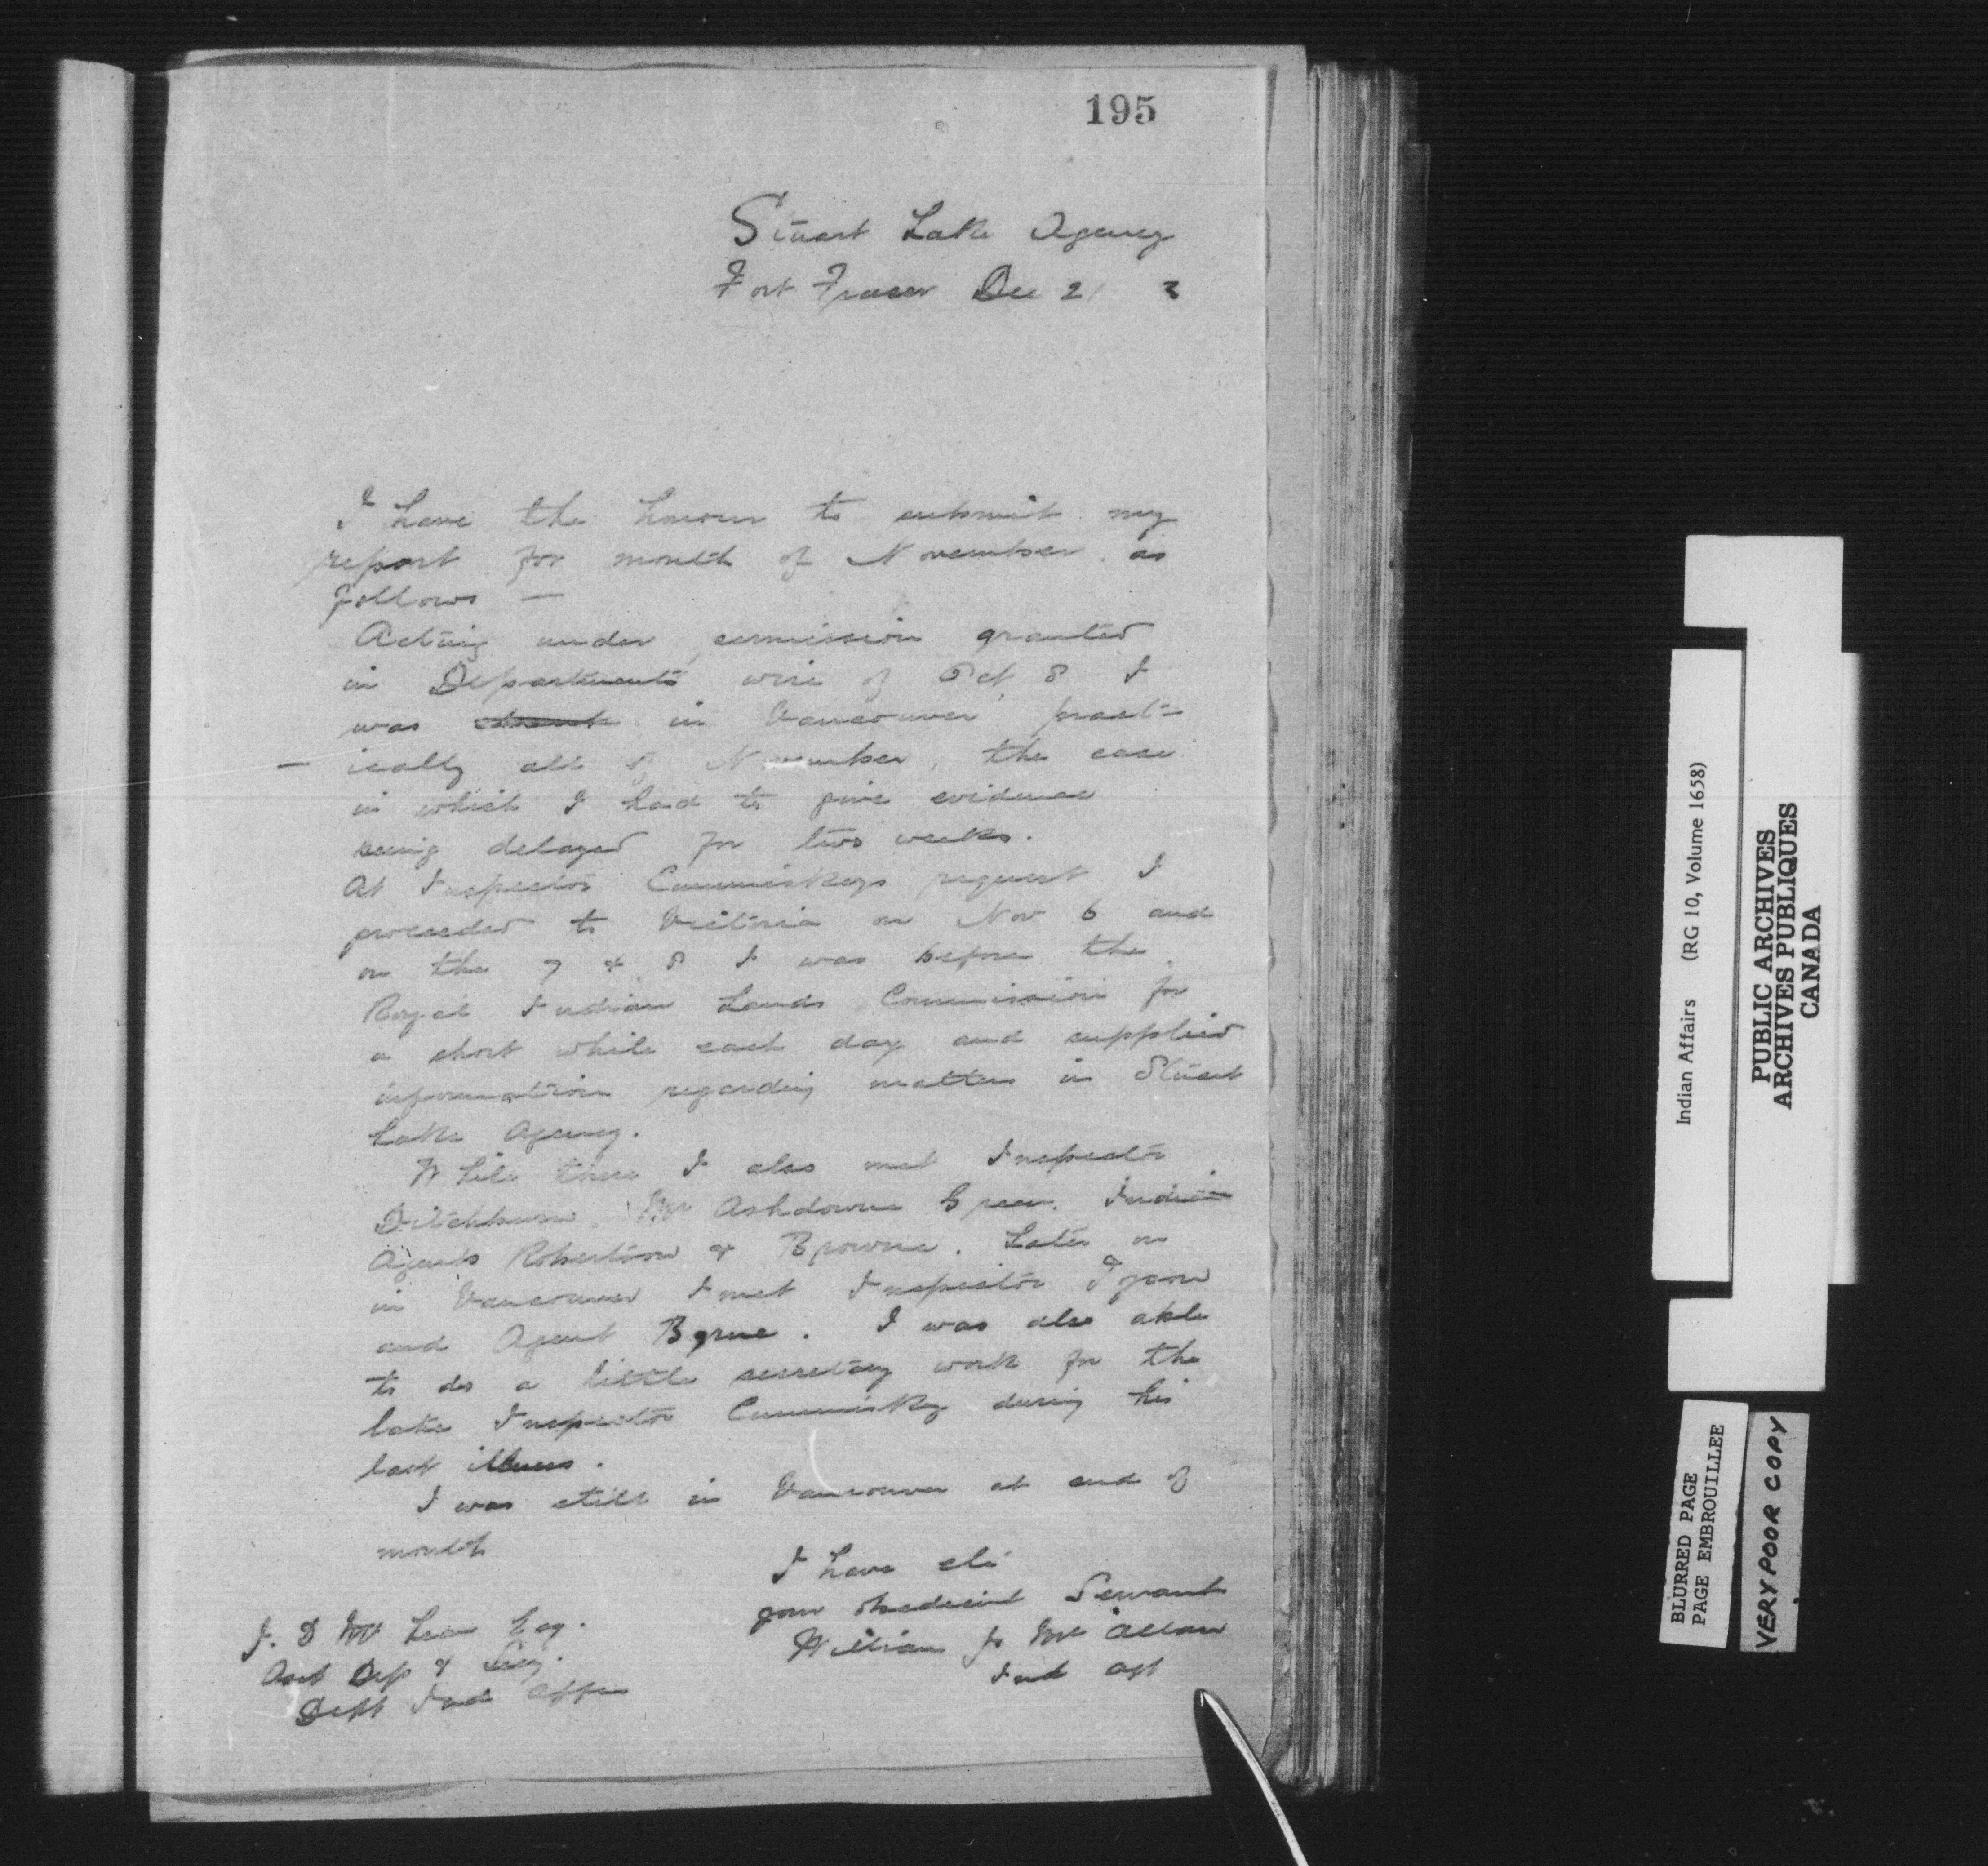 195
Stuart Lake Agency
Fort Fraser Dec 21 3
I have the honour to submit my
report for month of November as
follows —
Acting under permission granted
in Departments wire of Oct 8 I
was in Vancouver pract-
ically all of November, the case
in which I had to give evidence
being delayed for two weeks.
At Inspector Cummiskeys request I
proceeded to Victoria on Nov 6 and
on the 7 & 8 I was before the
Royal Indian Lands Commission for
a short while each day and supplied
information regarding matters in Stuart
Lake Agency.
While there I also met Inspector
Ditchburn, Mr Ashdowne Green. Indian
Agents Robertson & Browne. Later on
in Vancouver I met Inspector Tyson
and Agent Byrne. I was also able
to do a little secretary work for the
late Inspector Cummiskey during his
last illness.
I was still in Vancouver at end of
month
I have etc
your obedient Servant
William J McAllan
Ind Agt
J. D McLean Esq.
Asst Dep & Secy.
Dept Ind Affrs
Indian Affairs (RG 10, Volume 1658)
PUBLIC ARCHIVES
ARCHIVES PUBLIQUES
CANADA
BLURRED PAGE
PAGE EMBROUILLEE
VERY POOR COPY